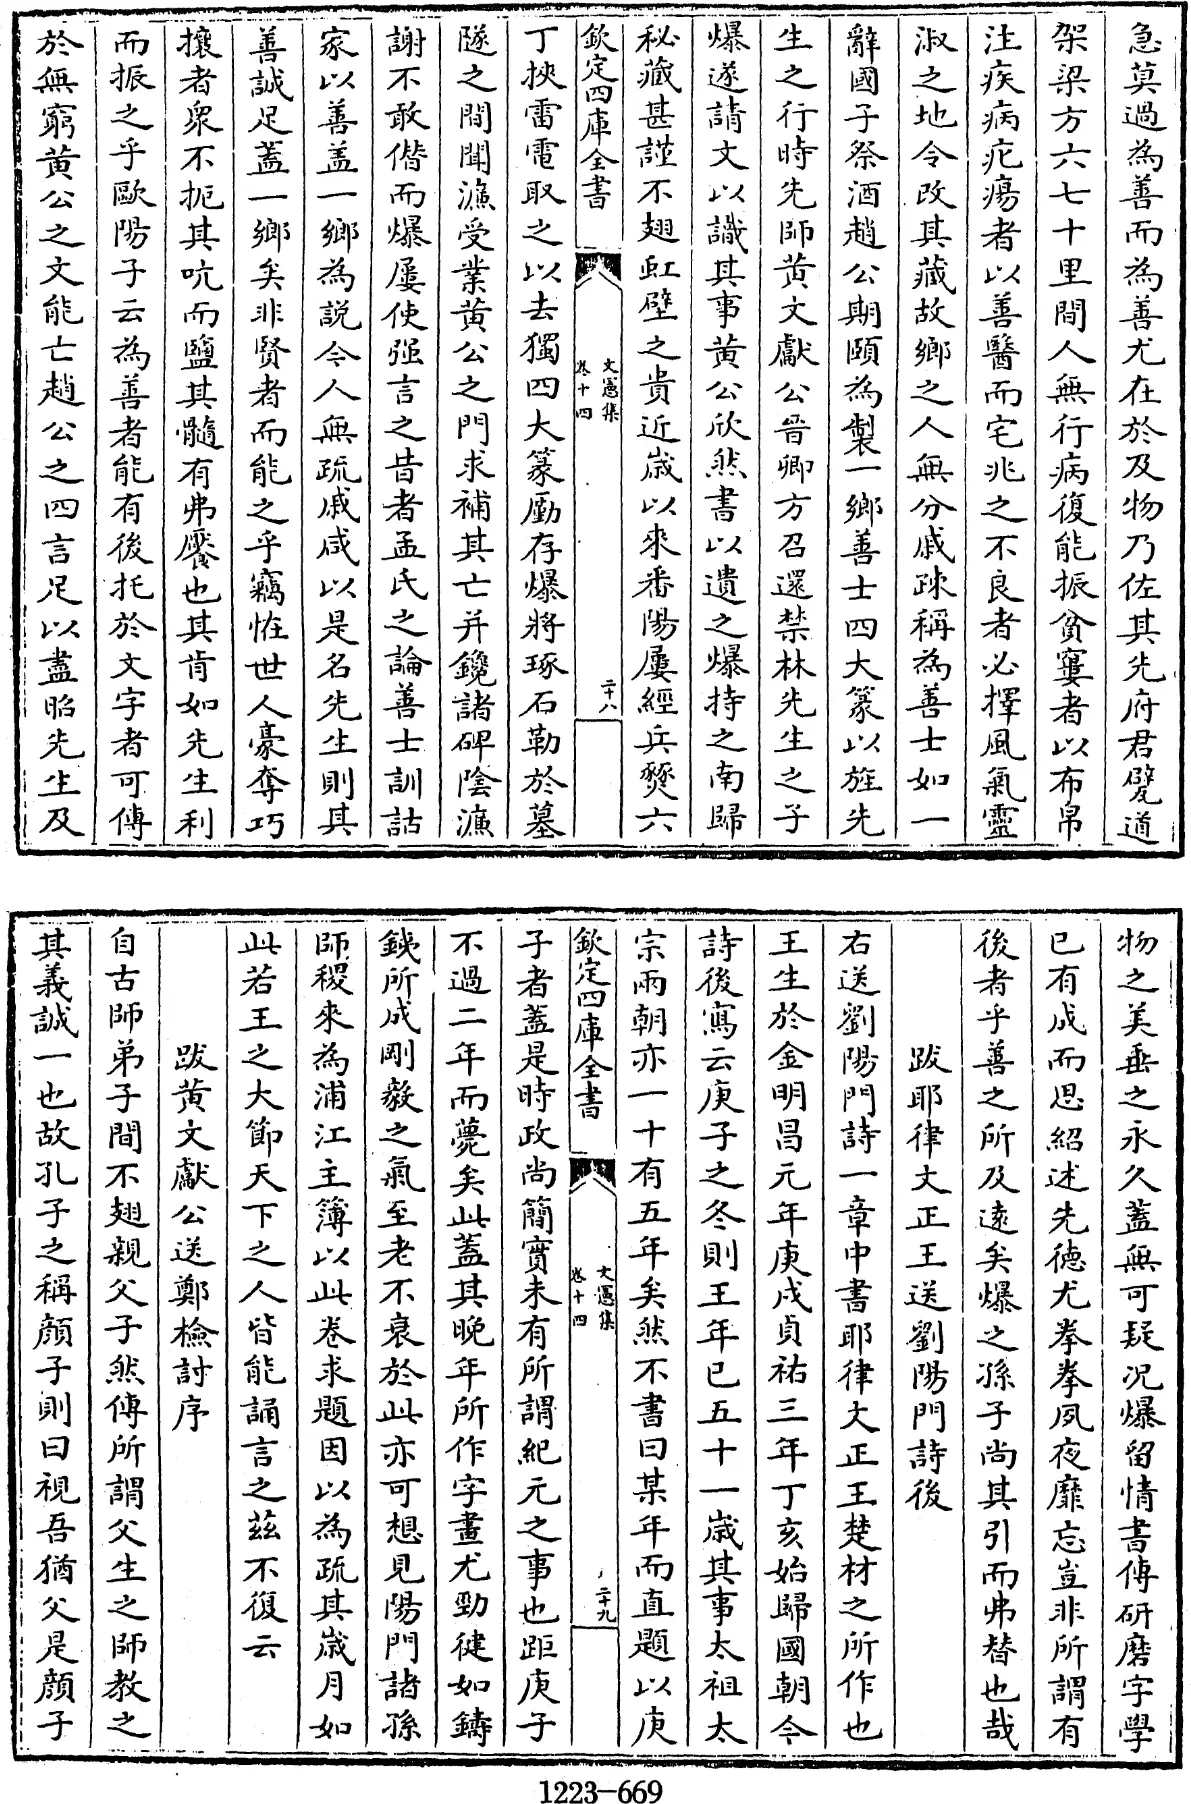 急莫過為善而為善尤在於及物乃佐其先府君甓道
架梁方六七十里間人無行病復能振貧窶者以布帛
注疾病疕瘍者以善醫而宅兆之不良者必擇風氣靈
淑之地令改其藏故鄉之人無分戚疎稱為善士如一
辭國子祭酒趙公期頤為製一鄉善士四大篆以旌先
生之行時先師黄文獻公晉卿方召還禁林先生之子
爆遂請文以識其事黄公欣然書以遺之爆持之南歸
秘藏甚謹不翅虹璧之貴近歲以來番陽屢經兵燹六
欽定四庫全書
文憲集
卷十四
二十八
丁挾雷電取之以去獨四大篆勵存爆將琢石勒於墓
隧之間聞濂受業黄公之門求補其亡并鑱諸碑隂濂
謝不敢偕而爆屢使强言之昔者孟氏之論善士訓詁
家以善盖一鄉為説令人無疏戚咸以是名先生則其
善誠足蓋一鄉矣非賢者而能之乎竊恠世人豪奪巧
攘者衆不扼其吭而盬其髓有弗饜也其肯如先生利
而振之乎歐陽子云為善者能有後托於文字者可傳
於無窮黄公之文能亡趙公之四言足以盡昭先生及
物之美垂之永久蓋無可疑况爆留情書傳研磨字學
已有成而思紹述先德尤拳拳夙夜靡忘豈非所謂有
後者乎善之所及逺矣爆之孫子尚其引而弗替也哉
跋耶律文正王送劉陽門詩後
右送劉陽門詩一章中書耶律文正王楚材之所作也
王生於金明昌元年庚戌貞祐三年丁亥始歸國朝今
詩後寫云庚子之冬則王年已五十一歲其事太祖太
宗兩朝亦一十有五年矣然不書曰某年而直題以庚
欽定四庫全書
文憲集
卷十四
二十九
子者蓋是時政尚簡實未有所謂紀元之事也距庚子
不過二年而薨矣此蓋其晚年所作字畫尤勁健如鑄
鐵所成剛毅之氣至老不衰於此亦可想見陽門諸孫
師稷來為浦江主簿以此卷求題因以為疏其歲月如
此若王之大節天下之人皆能誦言之兹不復云
跋黄文獻公送鄭檢討序
自古師弟子間不翅親父子然傳所謂父生之師教之
其義誠一也故孔子之稱顔子則曰視吾猶父是顔子
1223-669